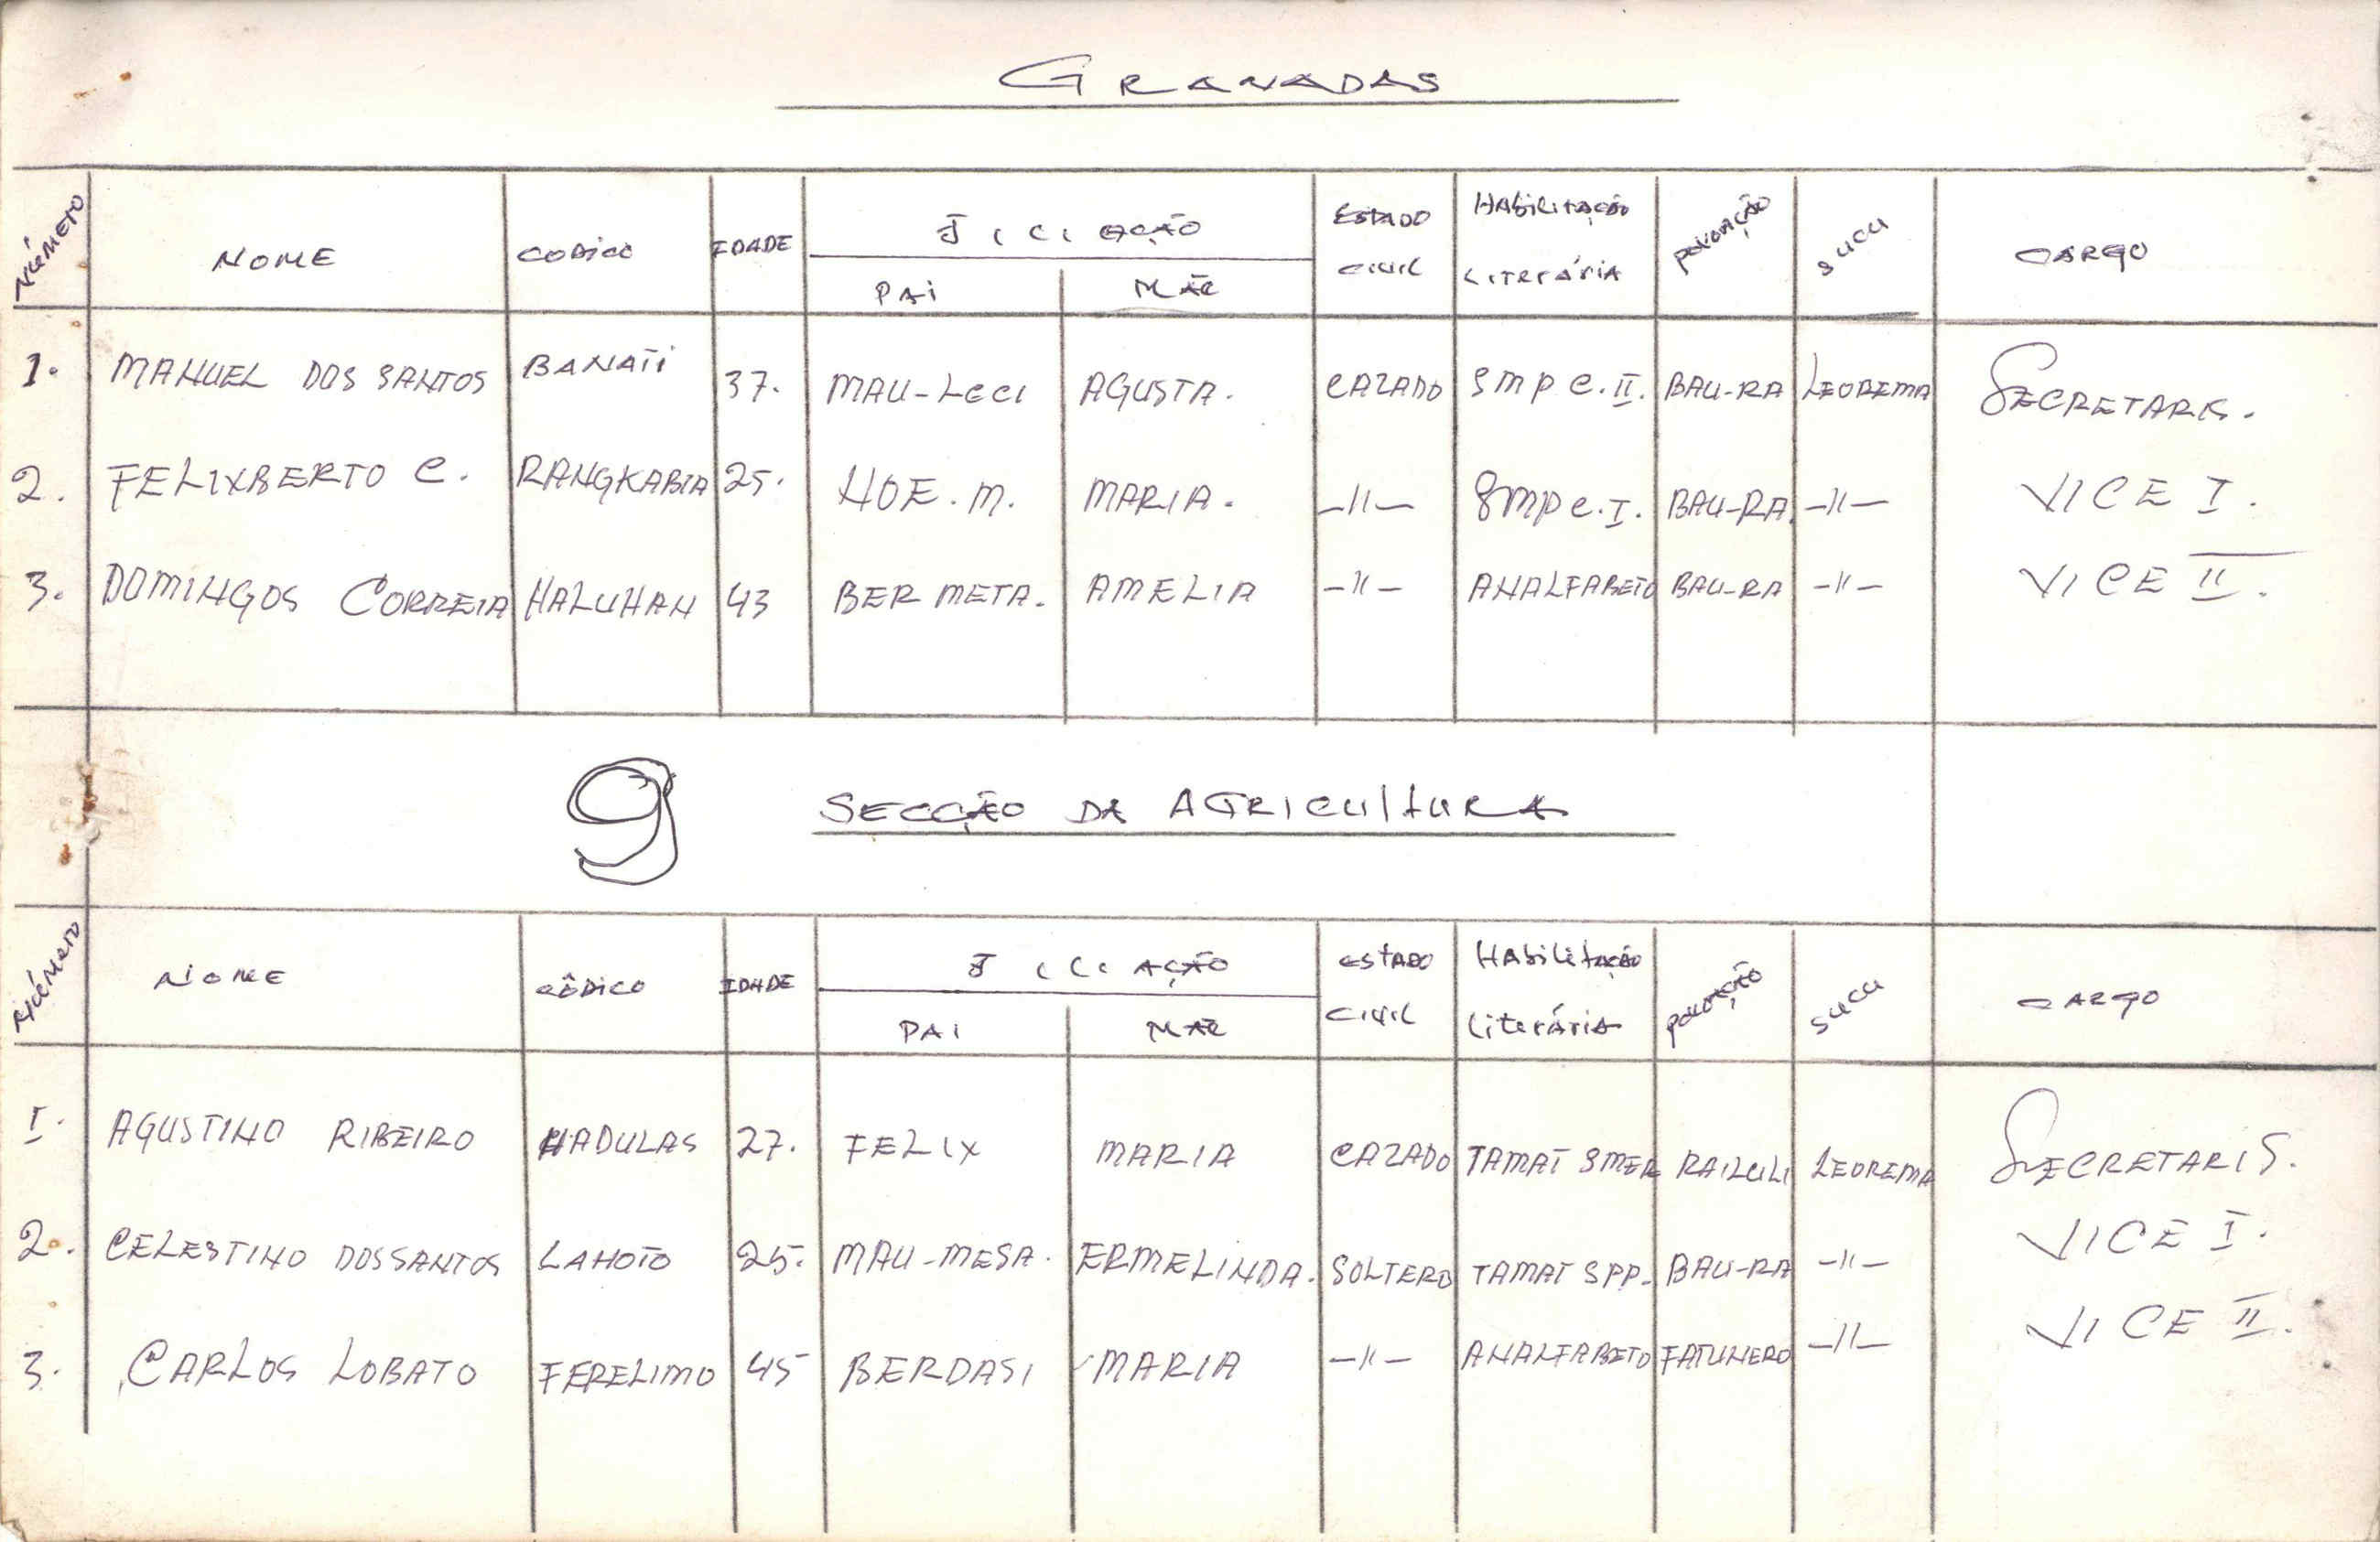 GRANADAS
Número NOME CODICO IDADE FILIAÇÃO ESTADO CIVIL HABILITAÇÃO LITERÁRIA POVOAÇÃO SUCU CARGO
PAI MÃE
1. MANUEL DOS SANTOS BANATI 37. MAU-LECI AGUSTA. CAZADO SMP C.II. BAU-RA LEOREMA SECRETARIS.
2. FELIXBERTO C. RANGKABIA 25. NOE.M. MARIA. -"- SMP C.I. BAU-RA. -"- VICE I.
3. DOMINGOS CORREIA HALUHAN 43 BER META. AMELIA -"- ANALFABETO BAU-RA -"- VICE II.
9 SECÇÃO DA AGRICULTURA
Número NOME CÔDICO IDADE FILIAÇÃO ESTADO CIVIL HABILITAÇÃO LITERÁRIA POVOAÇÃO SUCU CARGO
PAI MÃE
I. AGUSTINO RIBEIRO HADULAS 27. FELIX MARIA CAZADO TAMAT SMER RAILULI LEOREMA SECRETARIS.
2. CELESTINO DOS SANTOS LAHOTO 25. MAU-MESA. ERMELINDA. SOLTERO TAMAT SPP. BAU-RA -"- VICE I.
3. CARLOS LOBATO FERELIMO 45 BERDASI MARIA -"- ANALFABETO FATUNERO -"- VICE II.